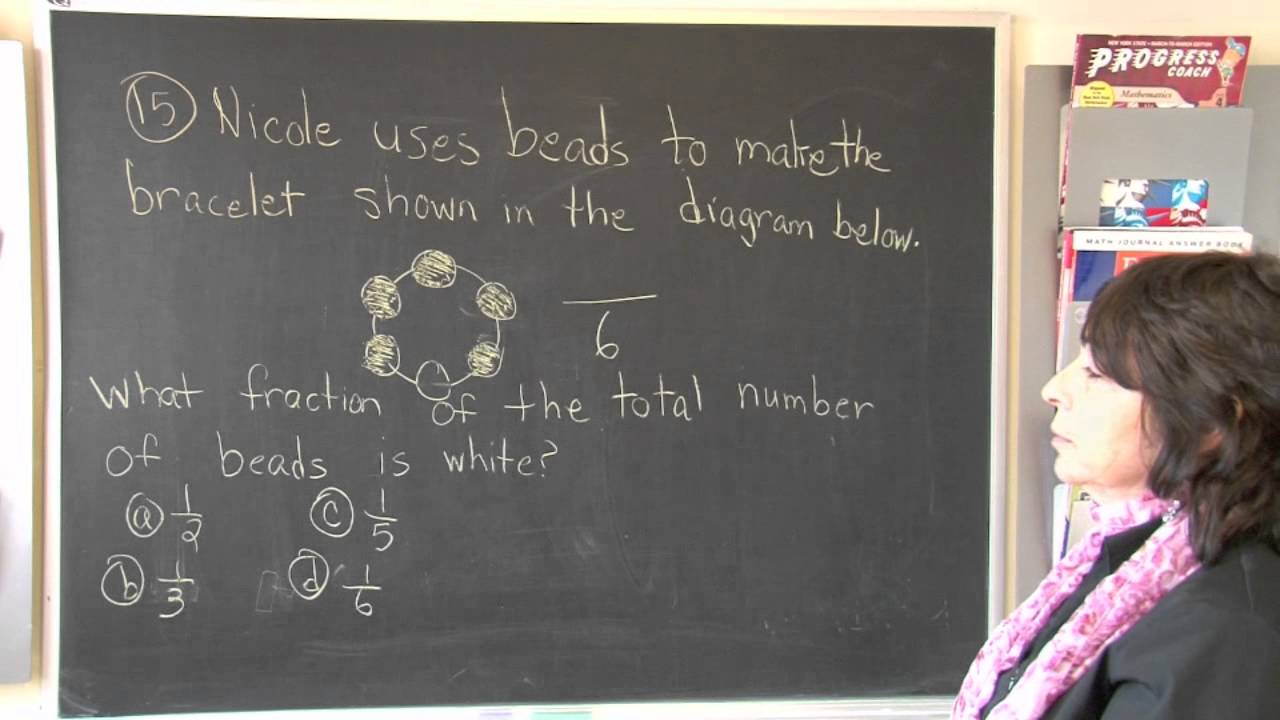 15 Nicole uses beads to make the
bracelet shown in the diagram below.
6
What fraction of the total number
of beads is white?
a 1/2 c 1/5
b 1/3 d 1/6
PROGRESS
COACH
Mathematics
4
MATH JOURNAL ANSWER BOOK